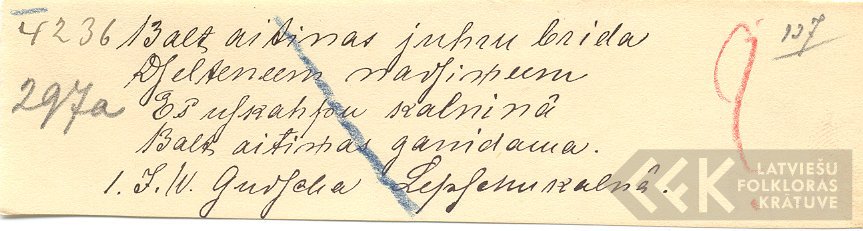 4236 Balt aitinas juhru brida
Dselteneem nadsineem
297a Es uskahpu kalninâ
Balt aitinas ganidama.
1. J. W. Gudscha Lepschukalnâ.
137
LATVIEŠU
FOLKLORAS
KRĀTUVE
LFK